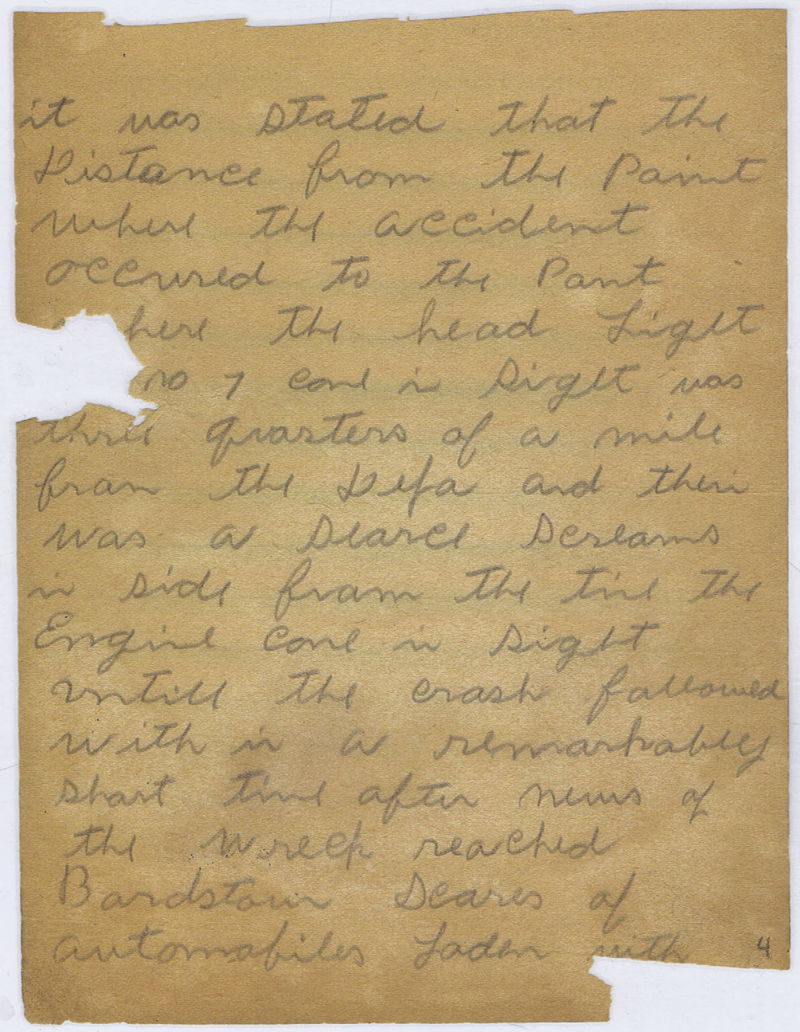 it was stated that the
Distance from the Paint
where the accident
occured to the Pant
here the head Light
no 7 come in Siglt was
three quarters of a mile
fram the Depa and their
was a Scarce Screams
in side fram the time the
Engine come in Sight
untill the crash fallowed
with in a remarkabley
shart time after news of
the Wreck reached
Bardstown Scares of
automobiles Loden with
4